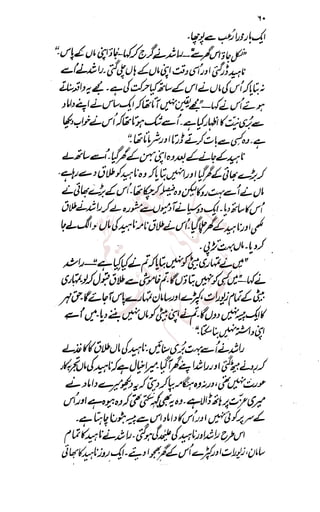 ۶۰
ایک بار پورا رعب سے پوچھا۔
"نکل جاؤ اس گھر سے" — راشد نے گرج کر کہا — "جاؤ اپنی ماں کے پاس۔"
ناہید ڈر گئی اور اُسی وقت اپنی ماں کے ہاں چلی گئی۔ راشد نے اُسے
نہ بتایا کہ اُس کی ماں نے اس کے ساتھ کیا حرکت کی ہے۔ مجھے یہ واقعہ سناتے
ہوئے اُس نے کہا — "مجھے یقین نہیں آتا تھا کہ ایک ساس نے اپنے داماد
سے بُری نیت کا اظہار کیا ہے۔ اُسے شک ہوتا تھا کہ اُس نے خواب دیکھا
ہے۔ وہ کسی سے بات کرتے ڈرتا اور شرماتا تھا۔"
ناہید کے جانے کے بعد وہ اپنی بہن کے گھر گیا۔ اُسے ساتھ لے
کر بڑے بھائی کے گھر گیا اور انہیں بتایا کہ وہ ناہید کو طلاق دے رہا ہے۔
ماں نے اُسے بہت روکا لیکن وہ فیصلہ کر چکا تھا۔ اُس کے بڑے بھائی نے
اُس کا ساتھ دیا۔ ایک دو سیانے آدمیوں سے مشورہ لے کر راشد نے طلاق
لکھی اور ناہید کے گھر چلا گیا۔ اُس نے طلاق نامہ ناہید کی ماں کو الگ لے جا
کر دیا۔ ماں بہت تڑپی۔
"میں نے تمہاری بیٹی کو نہیں بتایا کہ تم نے کیا کیا ہے" — راشد
نے کہا — "میں کسی کو نہیں بتاؤں گا۔ تم خاموشی سے طلاق قبول کر لو۔ تمہاری
بیٹی کے تمام زیورات، کپڑے اور سامان تمہارے پاس آ جائے گا۔ حق مہر
کا ایک پیسہ نہیں دوں گا۔ تم نے اپنی بیٹی کو ماں نہیں بننے دیا۔ میں اسے
اپنی داشتہ نہیں بنا سکتا۔"
راشد نے اُسے بہت بُری سنائیں۔ ناہید کی ماں طلاق کا کاغذ لے
کر رونے بیٹھ گئی اور راشد اپنے گھر آ گیا۔ میرا خیال ہے کہ ناہید کی ماں تجربہ کار
عورت نہیں تھی ورنہ وہ ہنگامہ بپا کر دیتی کہ یہ دیکھو میرے داماد نے
میری عزت پر ہاتھ ڈالا ہے۔ وہ یہ بھی کہہ سکتی تھی کہ وہ بیوہ ہے اور اُس
کے سر پر کوئی نہیں اور اُس کا داماد اس سے پیسہ بٹورنا چاہتا ہے۔
اس طرح راشد اور ناہید کی علیحدگی ہو گئی۔ راشد نے ناہید کا تمام
سامان، زیورات اور کپڑے اُس کے گھر بھجوا دیئے۔ ایک روز ناہید کا بھائی